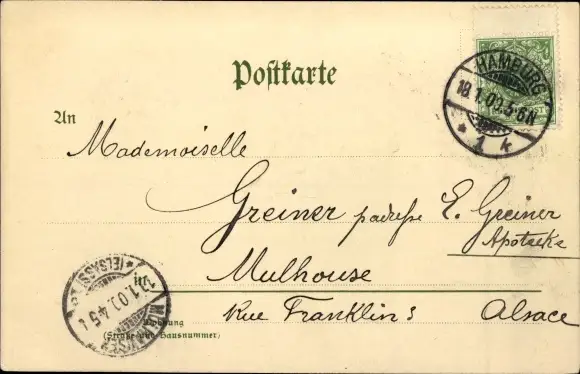 Postkarte
HAMBURG
18.1.00.5-6N
* 1 k
An
Mademoiselle
Greiner padrese E. Greiner
Apotheke
Mulhouse
(ELSASS)
Wohnung
(Straße und Hausnummer)
Rue Franklin 3 Alsace